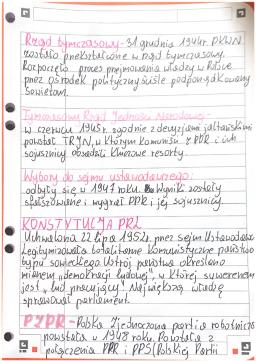 Rząd tymczasowy - 31 grudnia 1944r. PKWN
został przekształcony w rząd tymczasowy.
Rozpoczęto proces przejmowania władzy w Polsce
przez ośrodek polityczny ściśle podporządkowany
Sowietom.
Tymczasowy Rząd Jedności Narodowej -
w czerwcu 1945r. zgodnie z decyzjami jałtańskimi
powstał TRJN, w którym komuniści z PPR i ich
sojusznicy obsadzili kluczowe resorty.
Wybory do sejmu ustawodawczego:
odbyły się w 1947 roku. Wyniki zostały
sfałszowane i wygrał PPR i jej sojusznicy.
KONSTYTUCJA PRL
Uchwalona 22 lipca 1952r. przez sejm Ustawodawczy
Legitymizowała totalitarne komunistyczne państwo
typu sowieckiego. Ustrój państwa określono
mianem "demokracji ludowej", w której suwerenem
jest "lud pracujący". Największą władzę
sprawował parlament.
PZPR - Polska Zjednoczona partia robotnicza
powstała w 1948 roku. Powstała z
połączenia PPR i PPS (Polskiej Partii